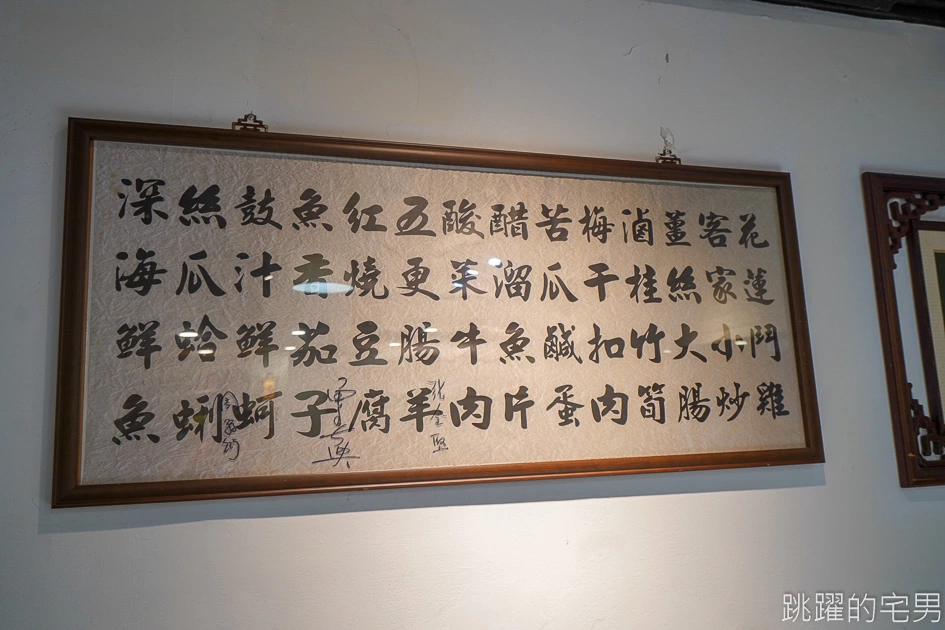 花蓮鬥雞
客家小炒
薑絲大腸
滷桂竹筍
梅干扣肉
苦瓜鹹蛋
醋溜魚片
酸菜牛肉
五更腸羊
红燒豆腐
魚香茄子
鼓汁鲜蚵
絲瓜蛤蜊
深海鲜魚
張全堅
跳躍的宅男